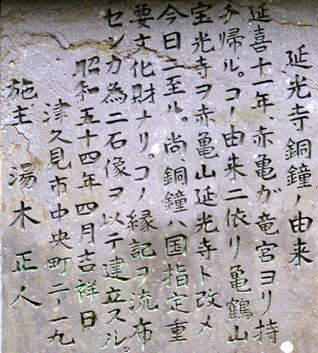 延光寺銅鐘ノ由来
延喜十一年、赤亀が竜宮ヨリ持
チ帰ル。コノ由来ニ依リ亀鶴山
宝光寺ヲ赤亀山延光寺ト改メ
今日ニ至ル。尚、銅鐘ハ国指定重
要文化財ナリ。コノ縁記ヲ流布
センガ為ニ石像ヲ以テ建立スル。
昭和五十四年四月吉祥日
津久見市中央町二ノ一九
施主 湯木正人